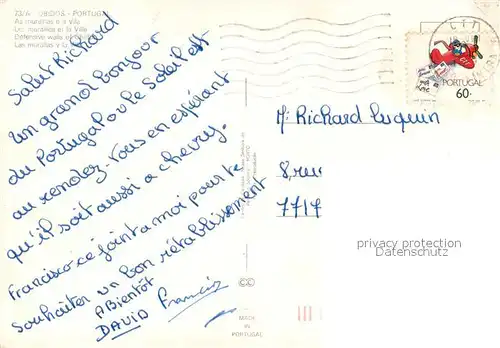 73/A - OBIDOS - PORTUGAL
As muralhas e a Vila
Les murailles et la Ville
Defensive walls
Las murallas y la
Salut Richard
Un grand bonjour
du Portugal ou le Soleil est
au rendez-vous en espérant
qu'il soit aussi a chevry.
Francisco ce joint a moi pour te
Souhaiter un bon rétablissement
A Bientôt
DAVID Francis
MADE
IN
PORTUGAL
PORTUGAL
60.
M. Richard Luquin
8, rue
7717
privacy protection
Datenschutz